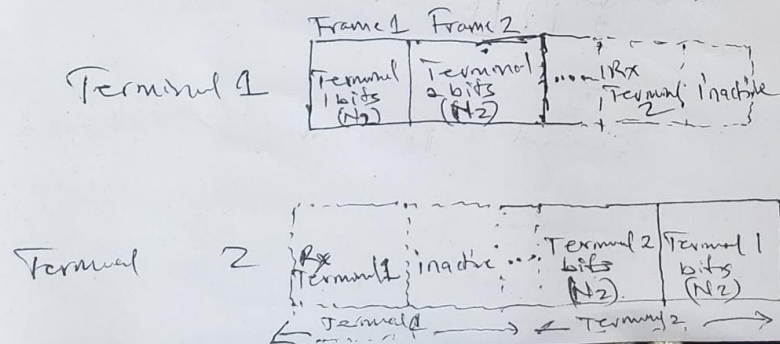 Frame 1 Frame 2
Terminal 1
Terminal
1 bits
(N2)
Terminal
2 bits
(N2)
....
Rx
Terminal
2
inactive
Terminal 2
Rx
Terminal 1
inactive
...
Terminal 2
bits
(N2)
Terminal 1
bits
(N2)
Terminal 1
Terminal 2